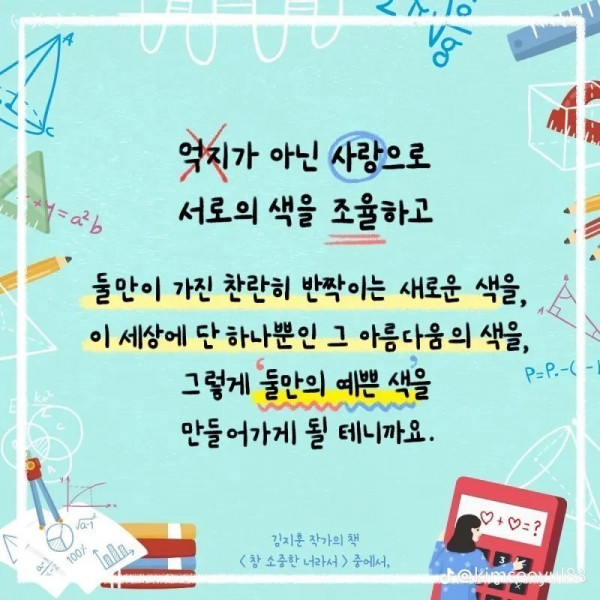 억지가 아닌 사랑으로
서로의 색을 조율하고
둘만이 가진 찬란히 반짝이는 새로운 색을,
이 세상에 단 하나뿐인 그 아름다움의 색을,
그렇게 '둘만의 예쁜 색'을
만들어가게 될 테니까요.
김지훈 작가의 책
< 참 소중한 너라서 > 중에서,
A
C
y = a²b
√a
P=P₀-(
kx²
√a-1
100%
♡+♡=?